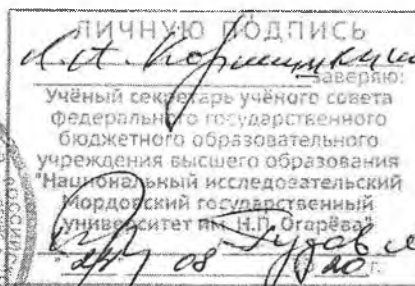 ЛИЧНУЮ ПОДПИСЬ
заверяю:
Учёный секретарь учёного совета
федерального государственного
бюджетного образовательного
учреждения высшего образования
"Национальный исследовательский
Мордовский государственный
университет им. Н.П. Огарёва"
08 20 г.